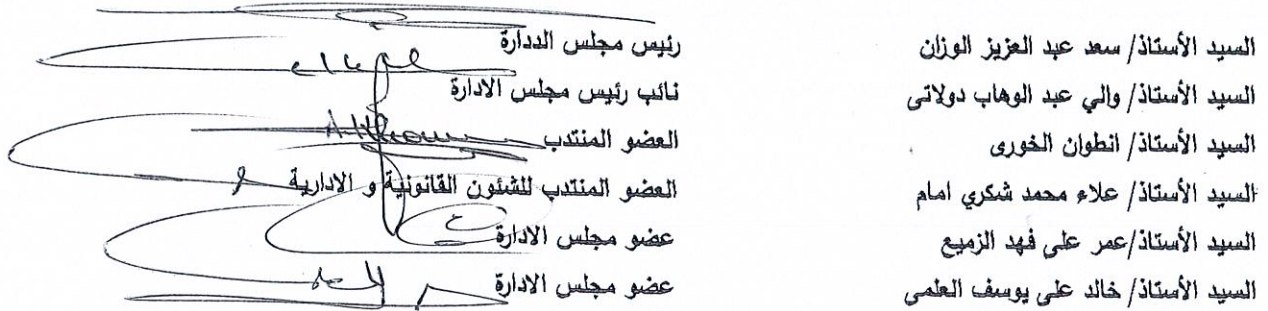 السيد الأستاذ/ سعد عبد العزيز الوزان رئيس مجلس الددارة
السيد الأستاذ/ والي عبد الوهاب دولاتى نائب رئيس مجلس الادارة
السيد الأستاذ/ انطوان الخورى العضو المنتدب
السيد الأستاذ/ علاء محمد شكري امام العضو المنتدب للشئون القانونية و الادارية
السيد الأستاذ/عمر على فهد الزميع عضو مجلس الادارة
السيد الأستاذ/ خالد على يوسف العلمى عضو مجلس الادارة